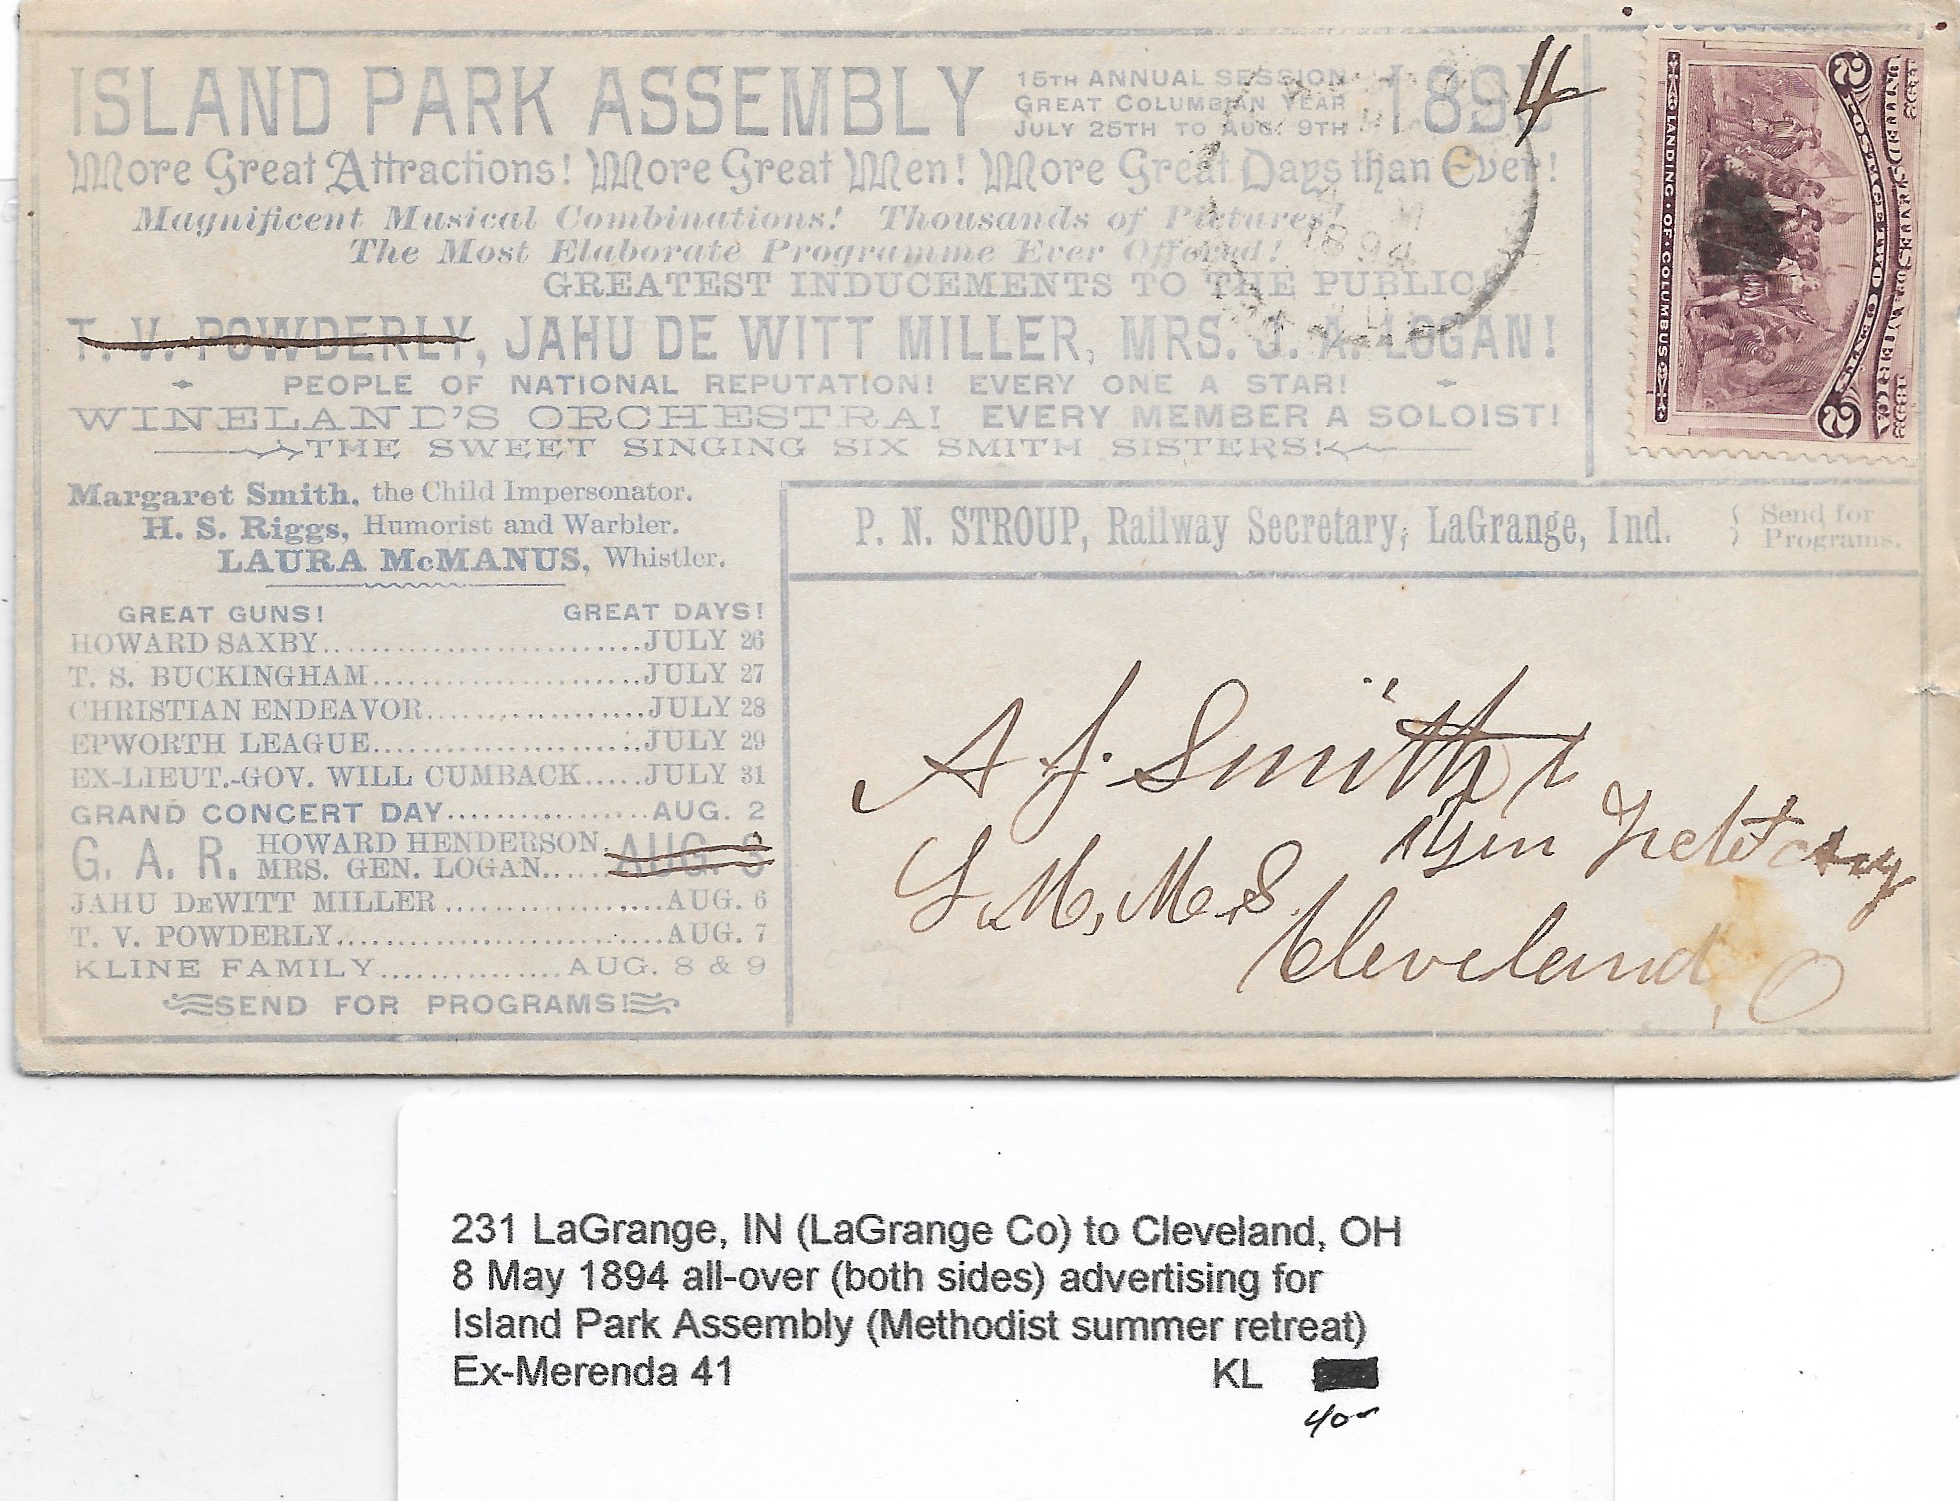 ISLAND PARK ASSEMBLY 15TH ANNUAL SESSION
GREAT COLUMBIAN YEAR
JULY 25TH TO AUG. 9TH 1894
More Great Attractions! More Great Men! More Great Days than Ever!
Magnificent Musical Combinations! Thousands of Pictures!
The Most Elaborate Programme Ever Offered!
GREATEST INDUCEMENTS TO THE PUBLIC
T. V. POWDERLY, JAHU DE WITT MILLER, MRS. J. A. LOGAN!
PEOPLE OF NATIONAL REPUTATION! EVERY ONE A STAR!
WINELAND'S ORCHESTRA! EVERY MEMBER A SOLOIST!
THE SWEET SINGING SIX SMITH SISTERS!
1894
LANDING OF COLUMBUS
2 POSTAGE TWO CENTS 2
UNITED STATES OF AMERICA
1492 1892
Margaret Smith, the Child Impersonator.
H. S. Riggs, Humorist and Warbler.
LAURA McMANUS, Whistler.
P. N. STROUP, Railway Secretary, LaGrange, Ind.
Send for
Programs.
GREAT GUNS! GREAT DAYS!
HOWARD SAXBY..........................JULY 26
T. S. BUCKINGHAM......................JULY 27
CHRISTIAN ENDEAVOR..................JULY 28
EPWORTH LEAGUE......................JULY 29
EX-LIEUT.-GOV. WILL CUMBACK.....JULY 31
GRAND CONCERT DAY.................AUG. 2
G. A. R. HOWARD HENDERSON.
MRS. GEN. LOGAN...... AUG. 3
JAHU DEWITT MILLER...................AUG. 6
T. V. POWDERLY............................AUG. 7
KLINE FAMILY...............AUG. 8 & 9
SEND FOR PROGRAMS!
A J. Smith
Gen
L. M, M. S.
Cleveland, O
231 LaGrange, IN (LaGrange Co) to Cleveland, OH
8 May 1894 all-over (both sides) advertising for
Island Park Assembly (Methodist summer retreat)
Ex-Merenda 41 KL
40-